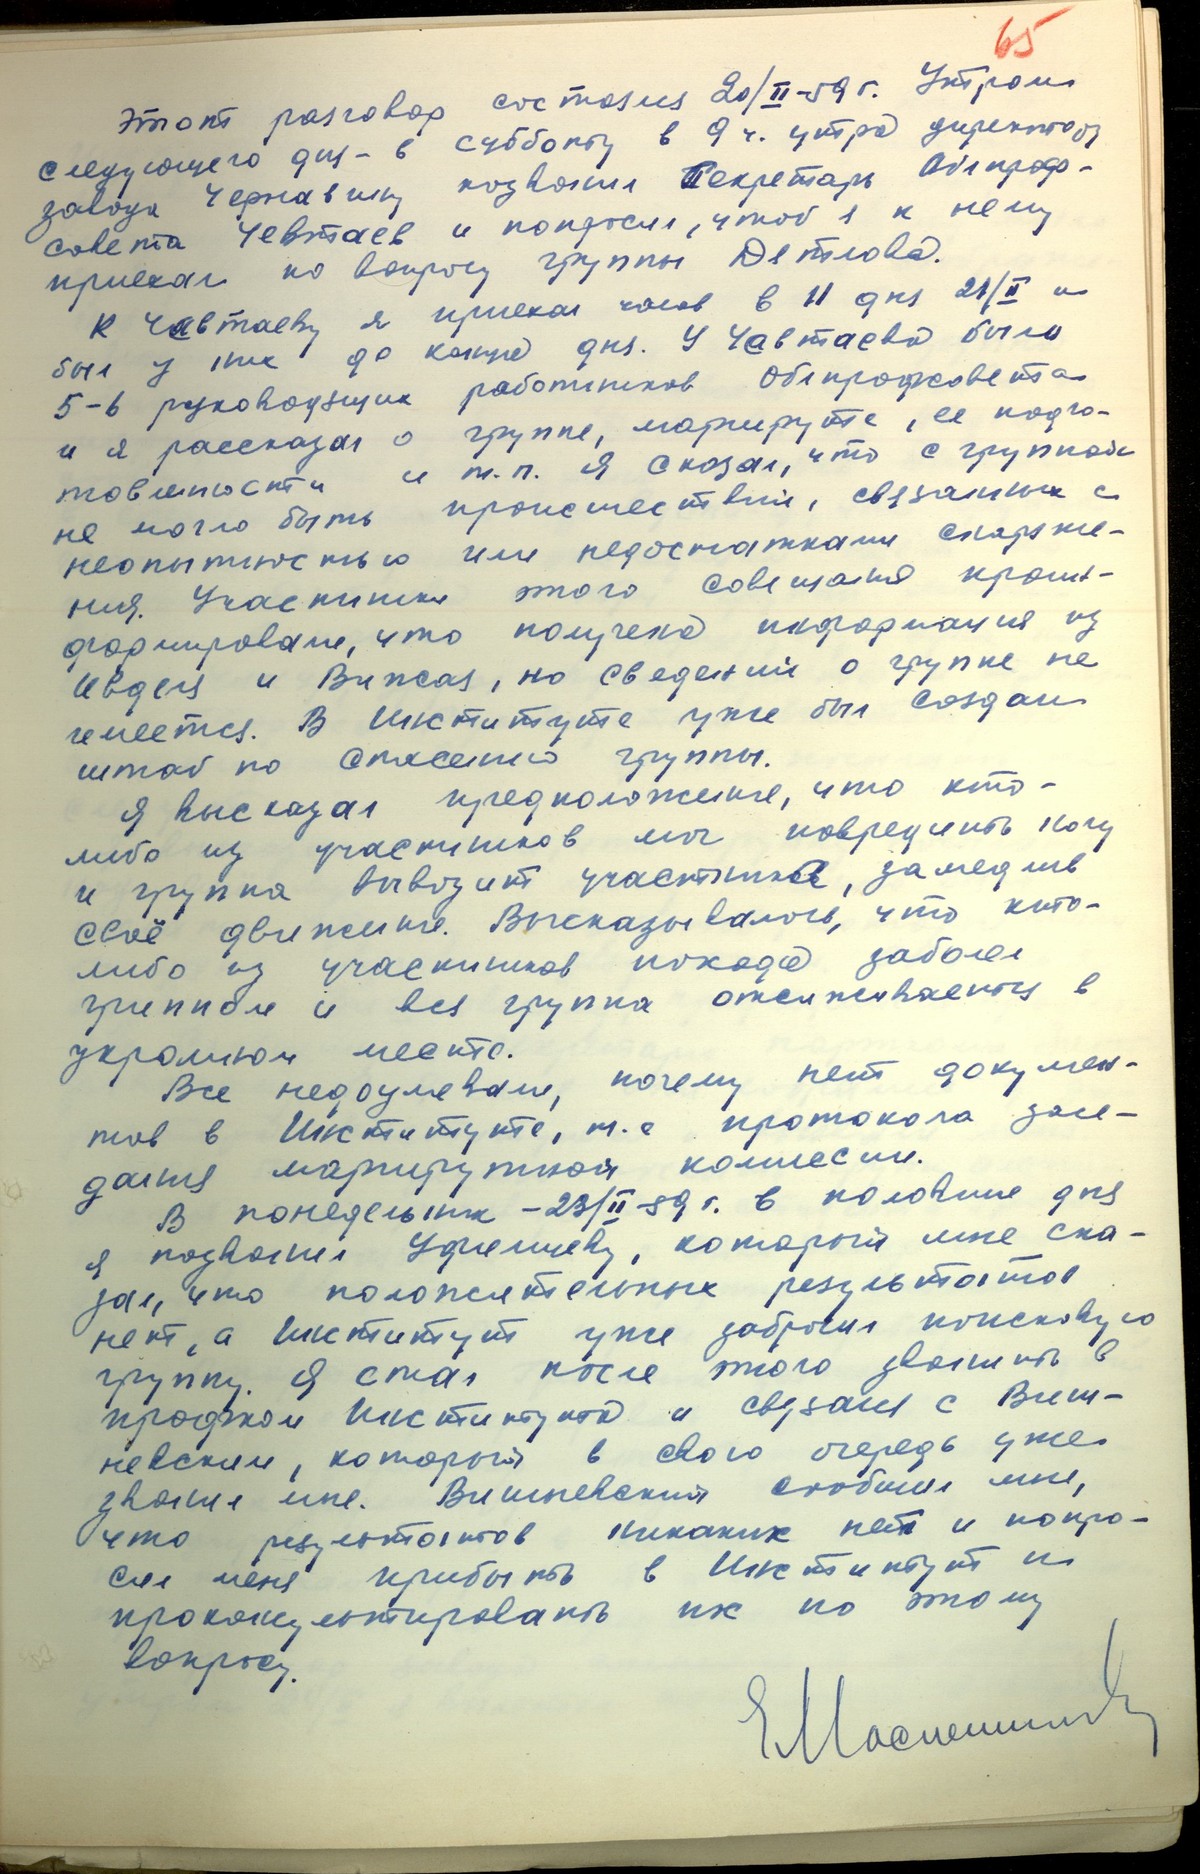 65
Этот разговор состоялся 20/II-59 г. Утром
следующего дня - в субботу в 9 ч. утра директору
завода Чернавину позвонил Секретарь Облпроф-
совета Чевтаев и попросил, чтоб я к нему
приехал по вопросу группы Дятлова.
К Чевтаеву я приехал часов в 11 дня 21/II и
был у них до конца дня. У Чевтаева было
5-6 руководящих работников Облпрофсовета
и я рассказал о группе, маршруте, ее подго-
товленности и т.п. Я сказал, что с группой
не могло быть происшествий, связанных с
неопытностью или недостатками снаряже-
ния. Участники этого совещания проин-
формировали, что получена информация из
Ивделя и Вижая, но сведений о группе не
имеется. В Институте уже был создан
штаб по спасению группы.
Я высказал предположение, что кто-
либо из участников мог повредить ногу
и группа вывозит участника, замедлив
своё движение. Высказывалось, что кто-
либо из участников похода заболел
гриппом и вся группа отсиживается в
укромном месте.
Все недоумевали, почему нет докумен-
тов в Институте, т.е протокола засе-
дания маршрутной комиссии.
В понедельник - 23/II-59 г. в половине дня
я позвонил Уфимцеву, который мне ска-
зал, что положительных результатов
нет, а Институт уже забросил поисковую
группу. Я стал после этого звонить в
профком Института и связался с Виш-
невским, который в свою очередь уже
звонил мне. Вишневский сообщил мне,
что результатов никаких нет и попро-
сил меня прибыть в Институт и
проконсультировать их по этому
вопросу.
ЕМасленников